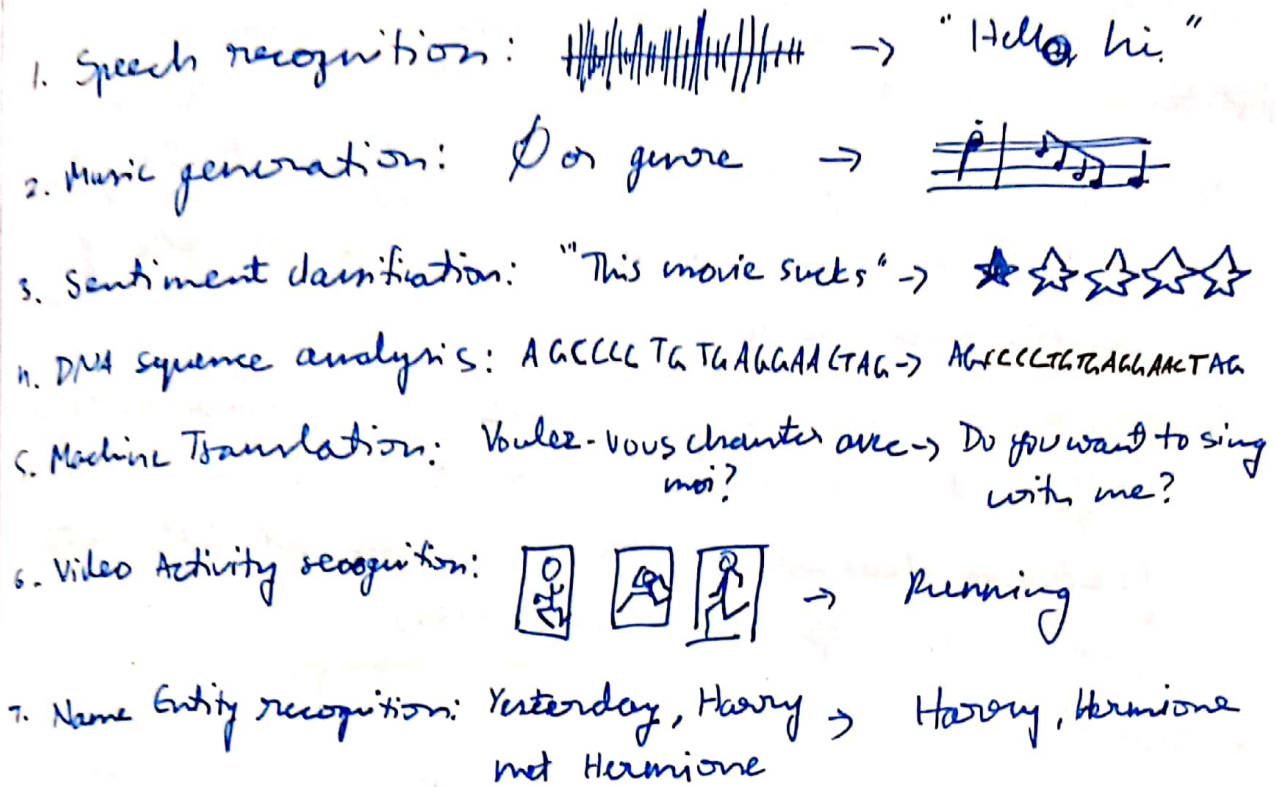 1. Speech recognition: → "Hello, hi."
2. Music generation: Ø or genre →
3. Sentiment classification: "This movie sucks" →
4. DNA sequence analysis: AGCCCCTGTGAGGAACTAG → AGCCCCTGTGAGGAACTAG
5. Machine Translation: Voulez-vous chanter avec → Do you want to sing
moi? with me?
6. Video Activity recognition: → Running
7. Name Entity recognition: Yesterday, Harry → Harry, Hermione
met Hermione